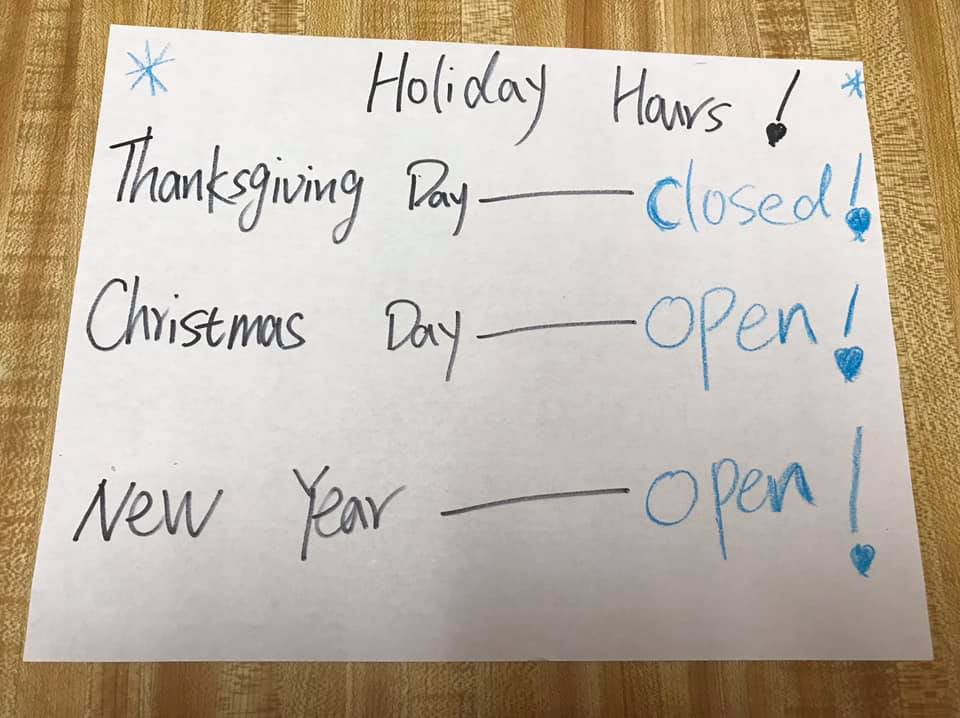 Holiday Hours!
Thanksgiving Day — Closed!
Christmas Day — Open!
New Year — Open!